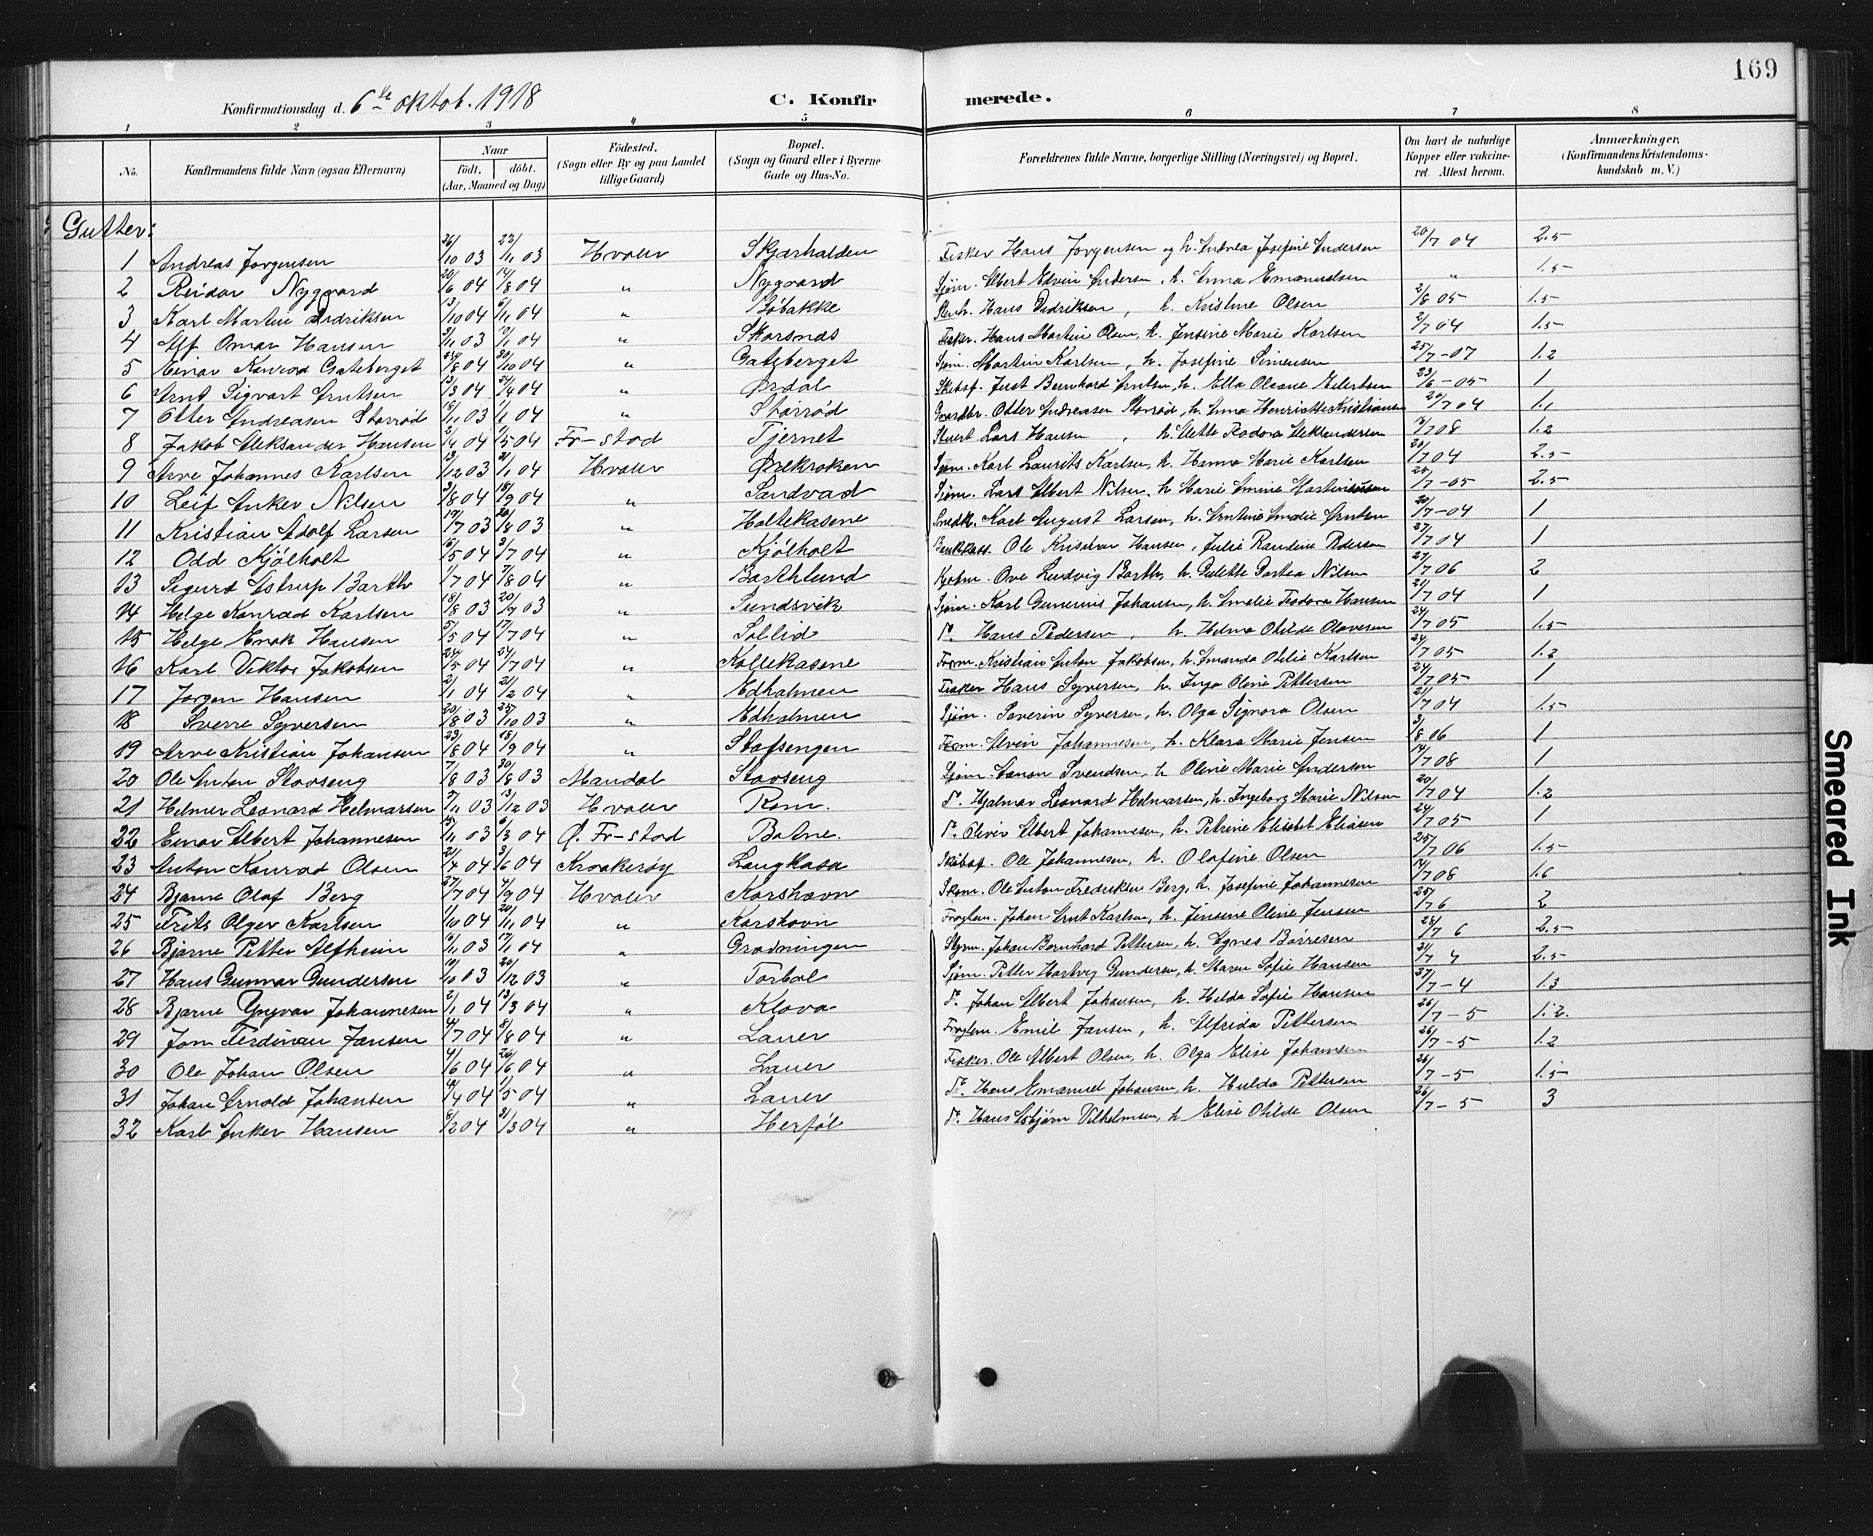 169
Konfirmationsdag d. 6te oktob. 1918 C. Konfirmerede.
1 2 3 4 5 6 7 8
No. Konfirmandens fulde Navn (ogsaa Efternavn) Naar født. døbt. (Aar, Maaned og Dag) Fødested. (Sogn eller By og paa Landet tillige Gaard) Bopæl. (Sogn og Gaard eller i Byerne Gade og Hus-No. Forældrenes fulde Navne, borgerlige Stilling (Næringsvei) og Bopæl. Om havt de naturlige Kopper eller vakcineret. Attest herom. Anmærkninger. (Konfirmandens Kristendomskundskab m. V.)
Gutter:
1 Andreas Jørgensen 26/10 03 22/11 03 Hvaler Skjærhalden Fisker Hans Jørgensen og h. Andrea Josefine Andersen 20/7 04 2.5
2 Reidar Nygaard 20/6 04 14/8 04 " Nygaard Sjøm. Albert Edvin Andersen, h. Anna Emanuelsen " 1.5
3 Karl Martin Didriksen 13/10 04 6/11 04 " Bøbakke Stenh. Hans Didriksen, h. Kristine Olsen 2/8 05 1.5
4 Alf Omar Hansen 2/11 03 17/1 04 " Skarsnes Fisker. Hans Martin Olsen, h. Jensine Marie Karlsen 2/7 04 1.5
5 Einar Konrad Gateberget 24/8 04 30/10 04 " Gateberget Sjøm. Martin Karlsen, h. Josefine Simensen 25/7-07 1.2
6 Arnt Sigvart Arntsen 13/3 04 24/4 04 " Ørdal Skibsf. Just Bernhard Arntsen, h. Ella Oleane Eilertsen 23/6-05 1
7 Otter Andreasen Storrød 18/11 03 1/1 04 " Storrød Gaardbr. Otter Andreasen Storrød, h. Anna Henriette Kristiansen 20/7 04 1.1
8 Jakob Aleksander Hansen 2/4 04 1/5 04 Fr-stad Tjernet Stuert Lars Hansen, h. Aette Teodora Aleksandersen 14/7 08 1.2
9 Arve Johannes Karlsen 13/12 03 31/1 04 Hvaler Ørekroken Sjøm. Karl Laurits Karlsen, h. Hanna Marie Karlsen 20/7 04 2.5
10 Leif Anker Nilsen 3/8 04 18/9 04 " Sandvad Sjøm. Lars Albert Nilsen, h. Marie Amine Martiniusen 20/7-05 2.5
11 Kristian Adolf Larsen 19/7 03 20/8 03 " Holtekasene Snedk. Karl August Larsen, h. Arntine Amalie Arntsen 20/7-04 1
12 Odd Kjølholt 6/5 04 3/7 04 " Kjølholt Bankkass. Ole Kristian Hansen, Julie Randine Pedersen 27/7 04 1
13 Sigurd Astrup Barth 1/7 04 7/8 04 " Barthlund Kjøbm. Ove Ludvig Barth, h. Gulette Dortea Nilsen 27/7 06 2
14 Helge Konrad Karlsen 18/8 03 20/9 03 " Sundsvik Sjøm. Karl Gunerius Johansen, h. Amalie Teodora Hansen 21/7 04 1
15 Helge Enok Hansen 5/5 04 17/7 04 " Sollid Do. Hans Pedersen, h. Helma Otilde Olavesen 24/7 05 1.5
16 Karl Viktor Jakobsen 24/5 04 24/7 04 " Kollekasene Form. Kristian Anton Jakobsen, h. Amanda Otilie Karlsen 24/7 05 1.2
17 Jørgen Hansen 2/1 04 21/2 04 " Edholmen Fisker Hans Syversen, h. Inga Oline Pettersen 24/7 05 1
18 Sverre Syversen 20/8 03 25/10 03 " Edholmen Sjøm. Severin Syversen, h. Olga Signora Olsen 21/7 04 1.5
19 Arve Kristian Johansen 23/8 04 18/9 04 " Stafsengen Form. Alvin Johannesen, h. Klara Marie Jensen 3/8 06 1
20 Ole Anton Stavseng 7/8 03 30/8 03 Mandal Stavseng Sjøm. Aanon Svendsen, h. Oline Marie Andersen 14/7 08 1
21 Helmer Leonard Helmarsen 7/11 03 13/12 03 Hvaler Rom. Do. Hjalmar Leonard Helmarsen, h. Ingeborg Marie Nilsen 20/7 04 1.2
22 Einar Albert Johannesen 15/11 03 6/3 04 Ø. Fr-stad Botne. Do. Oliver Albert Johannesen, h. Petrine Elisabet Eliasen 24/7 05 1
23 Anton Konrad Olsen 21/4 04 3/6 04 Kraakerøy Langkasa Skibsf. Ole Johannesen, h. Olafine Olsen 25/7 06 1.5
24 Bjarne Olaf Berg 27/7 04 4/9 04 Hvaler Korshavn Skom. Ole Anton Fredriksen Berg, h. Josefine Johannesen 14/7 08 1.6
25 Frits Olger Karlsen 1/10 04 20/11 04 " Korshavn Fragtem. Johan Arnt Karlsen, h. Jensine Oline Jensen 25/7 6 2
26 Bjarne Petter Alfheim 16/11 03 17/1 04 " Grødningen Styrm. Johan Bernhard Pettersen, h. Agnes Børresen 24/7 6 2.5
27 Hans Gunnar Gundersen 10/10 03 20/12 03 " Torbal Sjøm. Petter Hartvig Gundersen, h. Maren Sofie Hansen 21/7 4 2.5
28 Bjarne Yngvar Johannesen 2/1 04 13/3 04 " Klova Do. Johan Albert Johansen, h. Helda Sofie Hansen 27/7-4 1.3
29 Jom Ferdinan Jansen 4/7 04 8/8 04 " Lauer Fragtem. Emil Jansen, h. Alfrida Pettersen 26/7-5 1.2.
30 Ole Johan Olsen 4/6 04 26/6 04 " Lauer Fisker. Ole Albert Olsen, h. Olga Elise Johansen 26/7-5 1.2
31 Johan Arnold Johansen 4/4 04 1/5 04 " Lauer Do. Hans Emanuel Johansen, h. Hulda Pettersen 26/7-5 1.5
32 Karl Anker Hansen 8/2 04 31/3 04 " Herføl Do. Hans Asbjørn Vilhelmsen, h. Elise Otilde Olsen 26/7-5 3
Smeared Ink